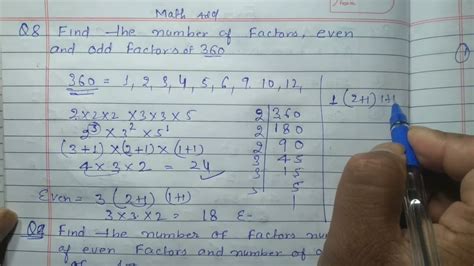 Math Add
Q8 Find the number of Factors, even
and odd factors of 360
360 = 1, 2, 3, 4, 5, 6, 9. 10, 12,
1 (2+1) 1+1
2×2×2×3×3×5
2³ × 3² × 5¹
(3+1) × (2+1) × (1+1)
4 × 3 × 2 = 24
2 | 360
2 | 180
2 | 90
3 | 45
3 | 15
5 | 5
1
Even = 3 (2+1) (1+1)
3×3×2 = 18 E-
Q9 Find the number of factors num
of even Factors and number of o